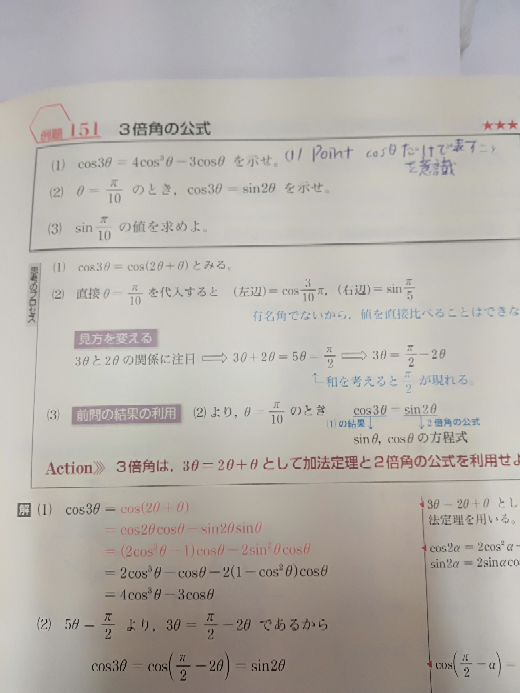 例題 151 3倍角の公式 ★★★
(1) cos3θ=4cos³θ−3cosθ を示せ。 (1) Point cosθだけで表すこと
を意識
(2) θ=π/10 のとき，cos3θ=sin2θ を示せ。
(3) sin π/10 の値を求めよ。
思考のプロセス
(1) cos3θ=cos(2θ+θ)とみる。
(2) 直接θ=π/10 を代入すると (左辺)=cos 3/10 π, (右辺)=sin π/5
有名角でないから，値を直接比べることはできな
見方を変える
3θと2θの関係に注目 ⟹ 3θ+2θ=5θ=π/2 ⟹ 3θ=π/2−2θ
和を考えると π/2 が現れる。
(3) 前問の結果の利用 (2)より，θ=π/10 のとき cos3θ=sin2θ
(1)の結果↓ ↓2倍角の公式
sinθ, cosθの方程式
Action》 3倍角は，3θ=2θ+θとして加法定理と2倍角の公式を利用せよ
解 (1) cos3θ=cos(2θ+θ)
=cos2θcosθ−sin2θsinθ
=(2cos²θ−1)cosθ−2sin²θcosθ
=2cos³θ−cosθ−2(1−cos²θ)cosθ
=4cos³θ−3cosθ
(2) 5θ=π/2 より，3θ=π/2−2θ であるから
cos3θ=cos(π/2−2θ)=sin2θ
3θ=2θ+θ とし
法定理を用いる。
cos2α=2cos²α−
sin2α=2sinαco
cos(π/2−α)=